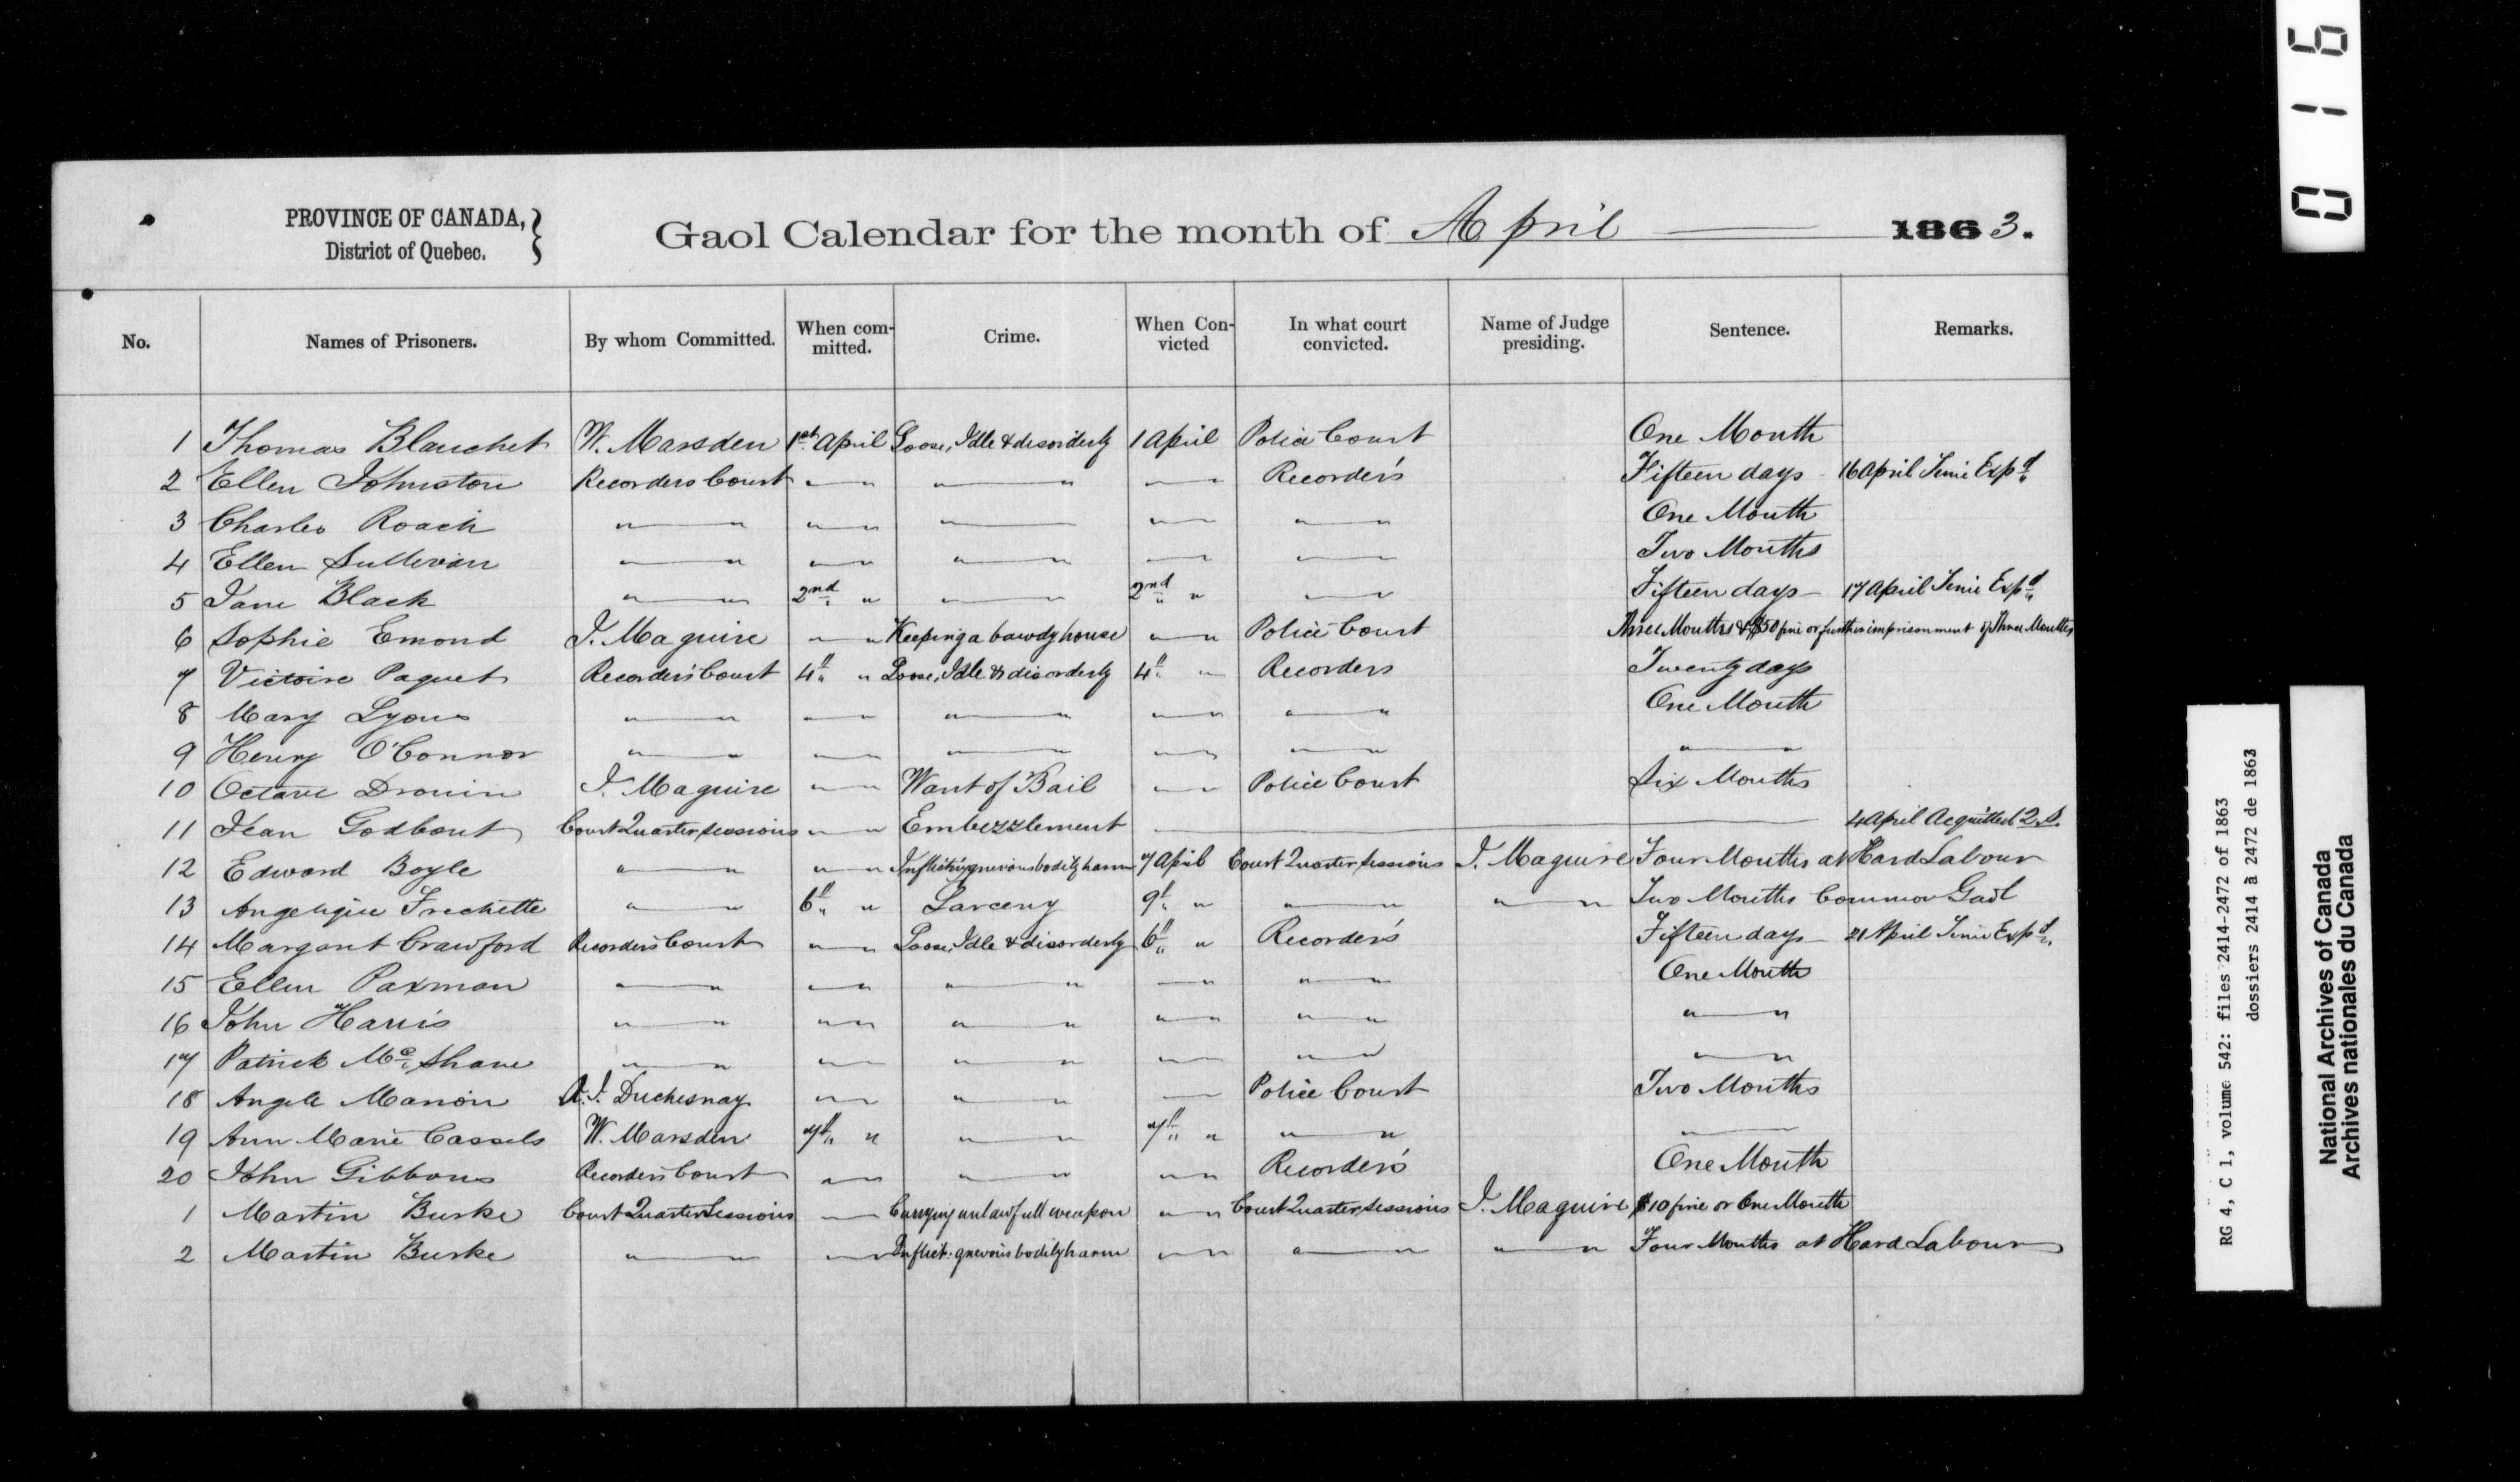 PROVINCE OF CANADA,
District of Quebec.
Gaol Calendar for the month of April 1863.
No. Names of Prisoners. By whom Committed. When com-mitted. Crime. When Con-victed In what court convicted. Name of Judge presiding. Sentence. Remarks.
1 Thomas Blanchet W. Marsden 1st April Loose, Idle & disorderly 1 April Police Court One Month
2 Ellen Johnston Recorders Court " " " " " " Recorder's Fifteen days 16 April Time Expd
3 Charles Roach " " " " " " " " " " One Month
4 Ellen Sullivan " " " " " " " " " " Two Months
5 Jane Black " " 2nd " " " 2nd " " " Fifteen days 17 April Time Expd
6 Sophie Emond J. Maguire " " Keeping a bawdy house " " Police Court Three Months & $50 fine or further imprisonment of Three Months
7 Victoire Paquet Recorder's Court 4th " Loose, Idle & disorderly 4th " Recorders Twenty days
8 Mary Lyons " " " " " " " " " " One Month
9 Henry O'Connor " " " " " " " " " " " "
10 Octave Drouin J. Maguire " " Want of Bail " " Police Court Six Months
11 Jean Godbout Court Quarter Sessions " " Embezzlement 4 April Acquitted 2.S.
12 Edward Boyle " " " " Inflicting grevious bodily harm 7 April Court Quarter Sessions J. Maguire Four Months at Hard Labour
13 Angelique Frechette " " 6th " Larceny 9th " " " " " Two Months Common Gaol
14 Margaret Crawford Recorders Court " " Loose, Idle & disorderly 6th " Recorder's Fifteen days 21 April Time Expd
15 Ellen Paxman " " " " " " " " " " One Month
16 John Harris " " " " " " " " " " " "
17 Patrick Mc Shane " " " " " " " " " " " "
18 Angele Manon A. J. Duchesnay " " " " " " Police Court Two Months
19 Ann Marie Cassels W. Marsden 7th " " " 7th " " " " "
20 John Gibbons Recorders Court " " " " " " Recorder's One Month
1 Martin Burke Court Quarter Sessions " " Carrying unlawfull weapon " " Court Quarter Sessions J. Maguire $10 fine or One Month
2 Martin Burke " " " " Inflict. grevious bodily harm " " " " " " Four Months at Hard Labour
016
RG 4, C 1, volume 542: files 2414-2472 of 1863
dossiers 2414 à 2472 de 1863
National Archives of Canada
Archives nationales du Canada